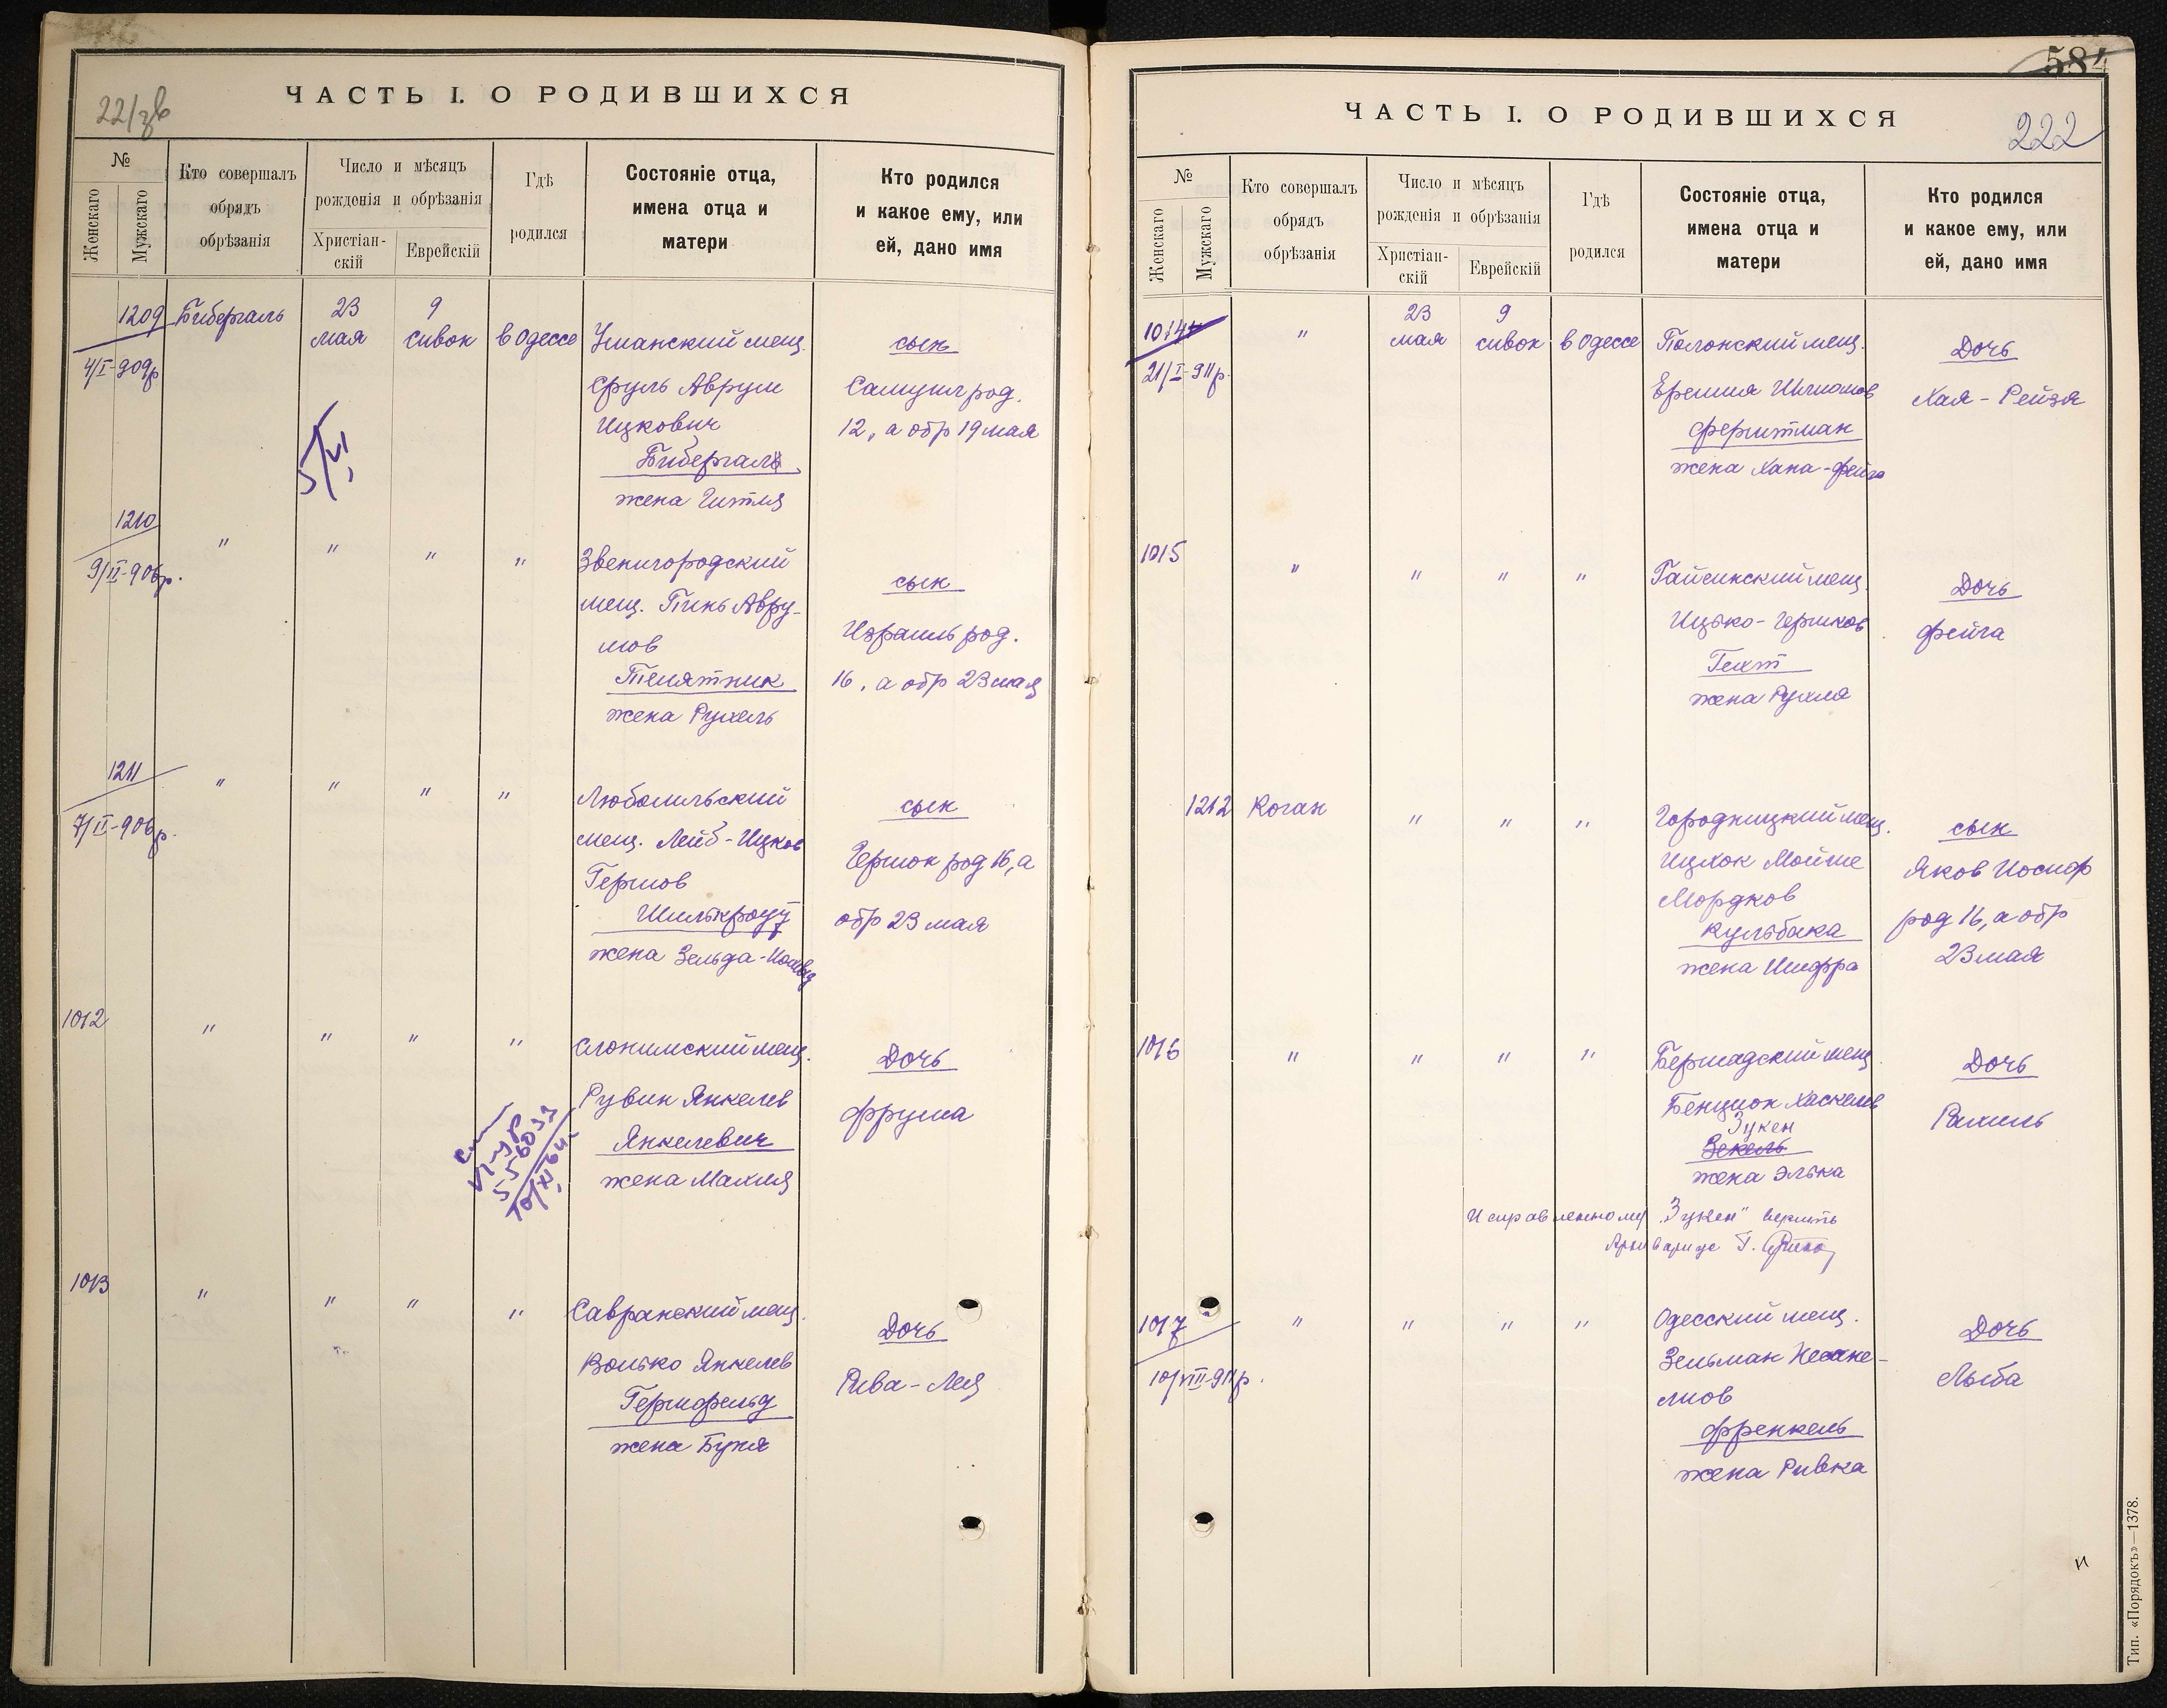 22/зв
ЧАСТЬ I. О РОДИВШИХСЯ
№
Женскаго
Мужскаго
Кто совершалъ
обрядъ
обрѣзанія
Число и мѣсяцъ
рожденія и обрѣзанія
Христіан-
скій
Еврейскій
Гдѣ
родился
Состояніе отца,
имена отца и
матери
Кто родился
и какое ему, или
ей, дано имя
1209 Бибергаль 23 мая 9 сивон в Одессе Уманский мещ. сын
4/I-909р
Сруль Аврум Самуил род.
Ицкович 12, а обр 19 мая
Бибергаль
жена Гитля
5/VI
1210 " " " " Звенигородский сын
9/II-906р.
мещ. Пинь Авру-
мов Израиль род.
Тепятник 16, а обр 23 мая
жена Рухель
1211 " " " " Любомильский сын
7/II-906р.
мещ. Лейб-Ицков Гершон род 16, а
Гершов
Шилькроут обр 23 мая
жена Зельда
1012 " " " " Слонимский мещ. Дочь
Рувин Янкелев Фрума
Янкелевич
жена Махля
1013 " " " " Савранский мещ. Дочь
Волько Янкелев Рива-Лея
Гершфельд
жена Буня
584
222
ЧАСТЬ I. О РОДИВШИХСЯ
№
Женскаго
Мужскаго
Кто совершалъ
обрядъ
обрѣзанія
Число и мѣсяцъ
рожденія и обрѣзанія
Христіан-
скій
Еврейскій
Гдѣ
родился
Состояніе отца,
имена отца и
матери
Кто родился
и какое ему, или
ей, дано имя
1014 " 23 мая 9 сивон в Одессе Полонский мещ. Дочь
21/I-911р.
Еремия Шлиомов Хая-Рейзя
Ферштман
жена Хана-Фейга
1015 " " " " Гайсинский мещ. Дочь
Ицько-Гершков Фейга
Гехт
жена Рухля
1212 Коган " " " Городницкий мещ. сын
Ицхок Мойше Яков Иосиф
Мордков род 16, а обр
Кульбака 23 мая
жена Шифра
1016 " " " " Бершадский мещ. Дочь
Бенцион Хаскелев Рахиль
Зукен
Зекель
жена Элька
Исправленному "Зукен" верить
Архивариус Г.
1017 " " " " Одесский мещ. Дочь
10/VIII-911р.
Зельман Нехаме- Лыба
лиов
Френкель
жена Ривка
Тип. «Порядокъ»—1378.